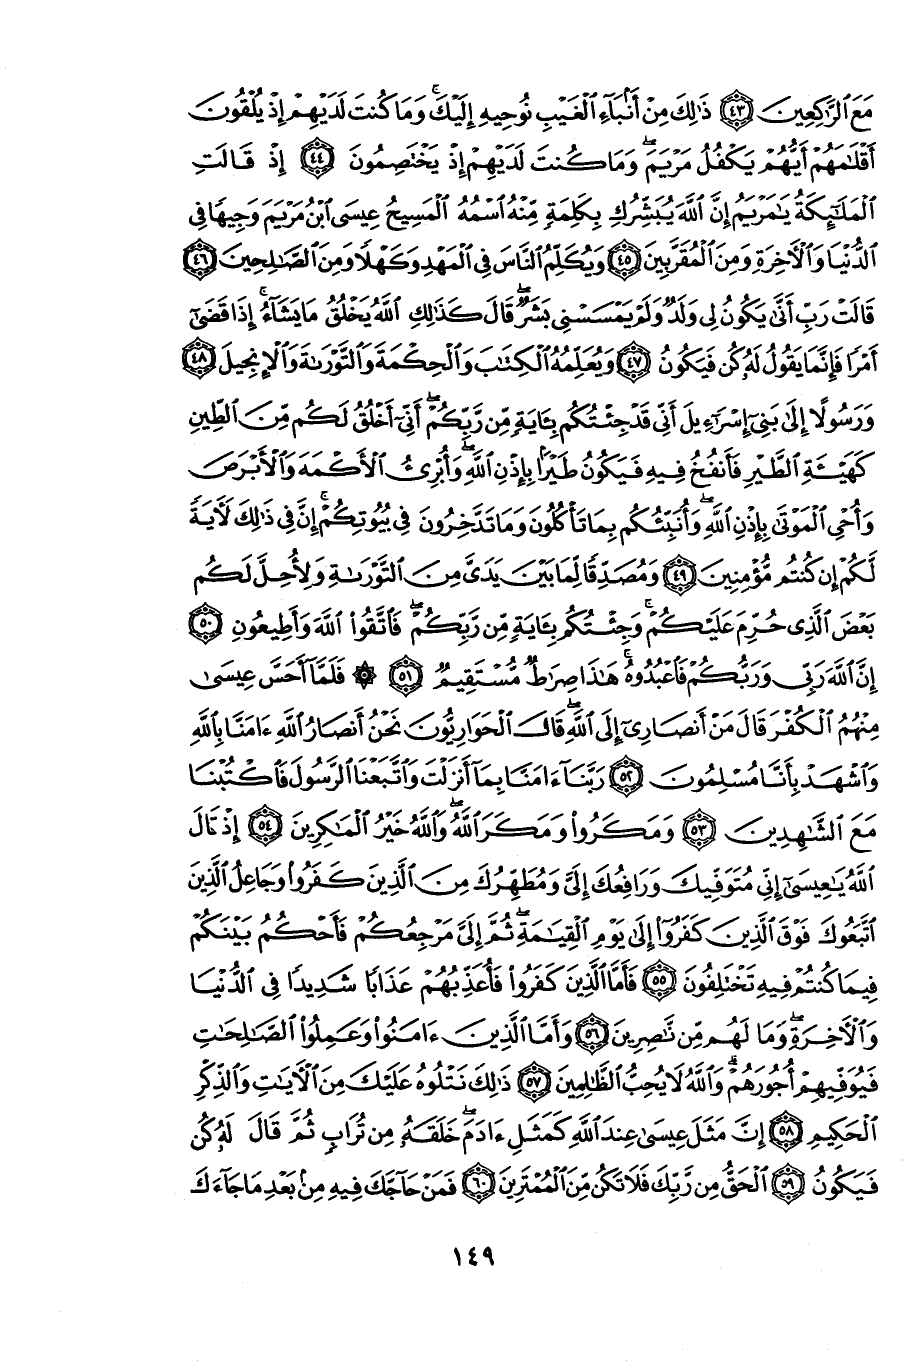 مَعَ ٱلرَّٰكِعِينَ ﴿٤٣﴾ ذَٰلِكَ مِنْ أَنۢبَآءِ ٱلْغَيْبِ نُوحِيهِ إِلَيْكَ ۚ وَمَا كُنتَ لَدَيْهِمْ إِذْ يُلْقُونَ
أَقْلَٰمَهُمْ أَيُّهُمْ يَكْفُلُ مَرْيَمَ ۖ وَمَا كُنتَ لَدَيْهِمْ إِذْ يَخْتَصِمُونَ ﴿٤٤﴾ إِذْ قَالَتِ
ٱلْمَلَٰٓئِكَةُ يَٰمَرْيَمُ إِنَّ ٱللَّهَ يُبَشِّرُكِ بِكَلِمَةٍ مِّنْهُ ٱسْمُهُ ٱلْمَسِيحُ عِيسَى ٱبْنُ مَرْيَمَ وَجِيهًا فِى
ٱلدُّنْيَا وَٱلْءَاخِرَةِ وَمِنَ ٱلْمُقَرَّبِينَ ﴿٤٥﴾ وَيُكَلِّمُ ٱلنَّاسَ فِى ٱلْمَهْدِ وَكَهْلًا وَمِنَ ٱلصَّٰلِحِينَ ﴿٤٦﴾
قَالَتْ رَبِّ أَنَّىٰ يَكُونُ لِى وَلَدٌ وَلَمْ يَمْسَسْنِى بَشَرٌ ۖ قَالَ كَذَٰلِكِ ٱللَّهُ يَخْلُقُ مَا يَشَآءُ ۚ إِذَا قَضَىٰٓ
أَمْرًا فَإِنَّمَا يَقُولُ لَهُۥ كُن فَيَكُونُ ﴿٤٧﴾ وَيُعَلِّمُهُ ٱلْكِتَٰبَ وَٱلْحِكْمَةَ وَٱلتَّوْرَىٰةَ وَٱلْإِنجِيلَ ﴿٤٨﴾
وَرَسُولًا إِلَىٰ بَنِىٓ إِسْرَٰٓءِيلَ أَنِّى قَدْ جِئْتُكُم بِـَٔايَةٍ مِّن رَّبِّكُمْ ۖ أَنِّىٓ أَخْلُقُ لَكُم مِّنَ ٱلطِّينِ
كَهَيْـَٔةِ ٱلطَّيْرِ فَأَنفُخُ فِيهِ فَيَكُونُ طَيْرًۢا بِإِذْنِ ٱللَّهِ ۖ وَأُبْرِئُ ٱلْأَكْمَهَ وَٱلْأَبْرَصَ
وَأُحْىِ ٱلْمَوْتَىٰ بِإِذْنِ ٱللَّهِ ۖ وَأُنَبِّئُكُم بِمَا تَأْكُلُونَ وَمَا تَدَّخِرُونَ فِى بُيُوتِكُمْ ۚ إِنَّ فِى ذَٰلِكَ لَءَايَةً
لَّكُمْ إِن كُنتُم مُّؤْمِنِينَ ﴿٤٩﴾ وَمُصَدِّقًا لِّمَا بَيْنَ يَدَىَّ مِنَ ٱلتَّوْرَىٰةِ وَلِأُحِلَّ لَكُم
بَعْضَ ٱلَّذِى حُرِّمَ عَلَيْكُمْ ۚ وَجِئْتُكُم بِـَٔايَةٍ مِّن رَّبِّكُمْ ۖ فَٱتَّقُوا۟ ٱللَّهَ وَأَطِيعُونِ ﴿٥٠﴾
إِنَّ ٱللَّهَ رَبِّى وَرَبُّكُمْ فَٱعْبُدُوهُ ۗ هَٰذَا صِرَٰطٌ مُّسْتَقِيمٌ ﴿٥١﴾ ۞ فَلَمَّآ أَحَسَّ عِيسَىٰ
مِنْهُمُ ٱلْكُفْرَ قَالَ مَنْ أَنصَارِىٓ إِلَى ٱللَّهِ ۖ قَالَ ٱلْحَوَارِيُّونَ نَحْنُ أَنصَارُ ٱللَّهِ ءَامَنَّا بِٱللَّهِ
وَٱشْهَدْ بِأَنَّا مُسْلِمُونَ ﴿٥٢﴾ رَبَّنَآ ءَامَنَّا بِمَآ أَنزَلْتَ وَٱتَّبَعْنَا ٱلرَّسُولَ فَٱكْتُبْنَا
مَعَ ٱلشَّٰهِدِينَ ﴿٥٣﴾ وَمَكَرُوا۟ وَمَكَرَ ٱللَّهُ ۖ وَٱللَّهُ خَيْرُ ٱلْمَٰكِرِينَ ﴿٥٤﴾ إِذْ قَالَ
ٱللَّهُ يَٰعِيسَىٰٓ إِنِّى مُتَوَفِّيكَ وَرَافِعُكَ إِلَىَّ وَمُطَهِّرُكَ مِنَ ٱلَّذِينَ كَفَرُوا۟ وَجَاعِلُ ٱلَّذِينَ
ٱتَّبَعُوكَ فَوْقَ ٱلَّذِينَ كَفَرُوٓا۟ إِلَىٰ يَوْمِ ٱلْقِيَٰمَةِ ۖ ثُمَّ إِلَىَّ مَرْجِعُكُمْ فَأَحْكُمُ بَيْنَكُمْ
فِيمَا كُنتُمْ فِيهِ تَخْتَلِفُونَ ﴿٥٥﴾ فَأَمَّا ٱلَّذِينَ كَفَرُوا۟ فَأُعَذِّبُهُمْ عَذَابًا شَدِيدًا فِى ٱلدُّنْيَا
وَٱلْءَاخِرَةِ ۖ وَمَا لَهُم مِّن نَّٰصِرِينَ ﴿٥٦﴾ وَأَمَّا ٱلَّذِينَ ءَامَنُوا۟ وَعَمِلُوا۟ ٱلصَّٰلِحَٰتِ
فَيُوَفِّيهِمْ أُجُورَهُمْ ۗ وَٱللَّهُ لَا يُحِبُّ ٱلظَّٰلِمِينَ ﴿٥٧﴾ ذَٰلِكَ نَتْلُوهُ عَلَيْكَ مِنَ ٱلْءَايَٰتِ وَٱلذِّكْرِ
ٱلْحَكِيمِ ﴿٥٨﴾ إِنَّ مَثَلَ عِيسَىٰ عِندَ ٱللَّهِ كَمَثَلِ ءَادَمَ ۖ خَلَقَهُۥ مِن تُرَابٍ ثُمَّ قَالَ لَهُۥ كُن
فَيَكُونُ ﴿٥٩﴾ ٱلْحَقُّ مِن رَّبِّكَ فَلَا تَكُن مِّنَ ٱلْمُمْتَرِينَ ﴿٦٠﴾ فَمَنْ حَآجَّكَ فِيهِ مِنۢ بَعْدِ مَا جَآءَكَ
١٤٩